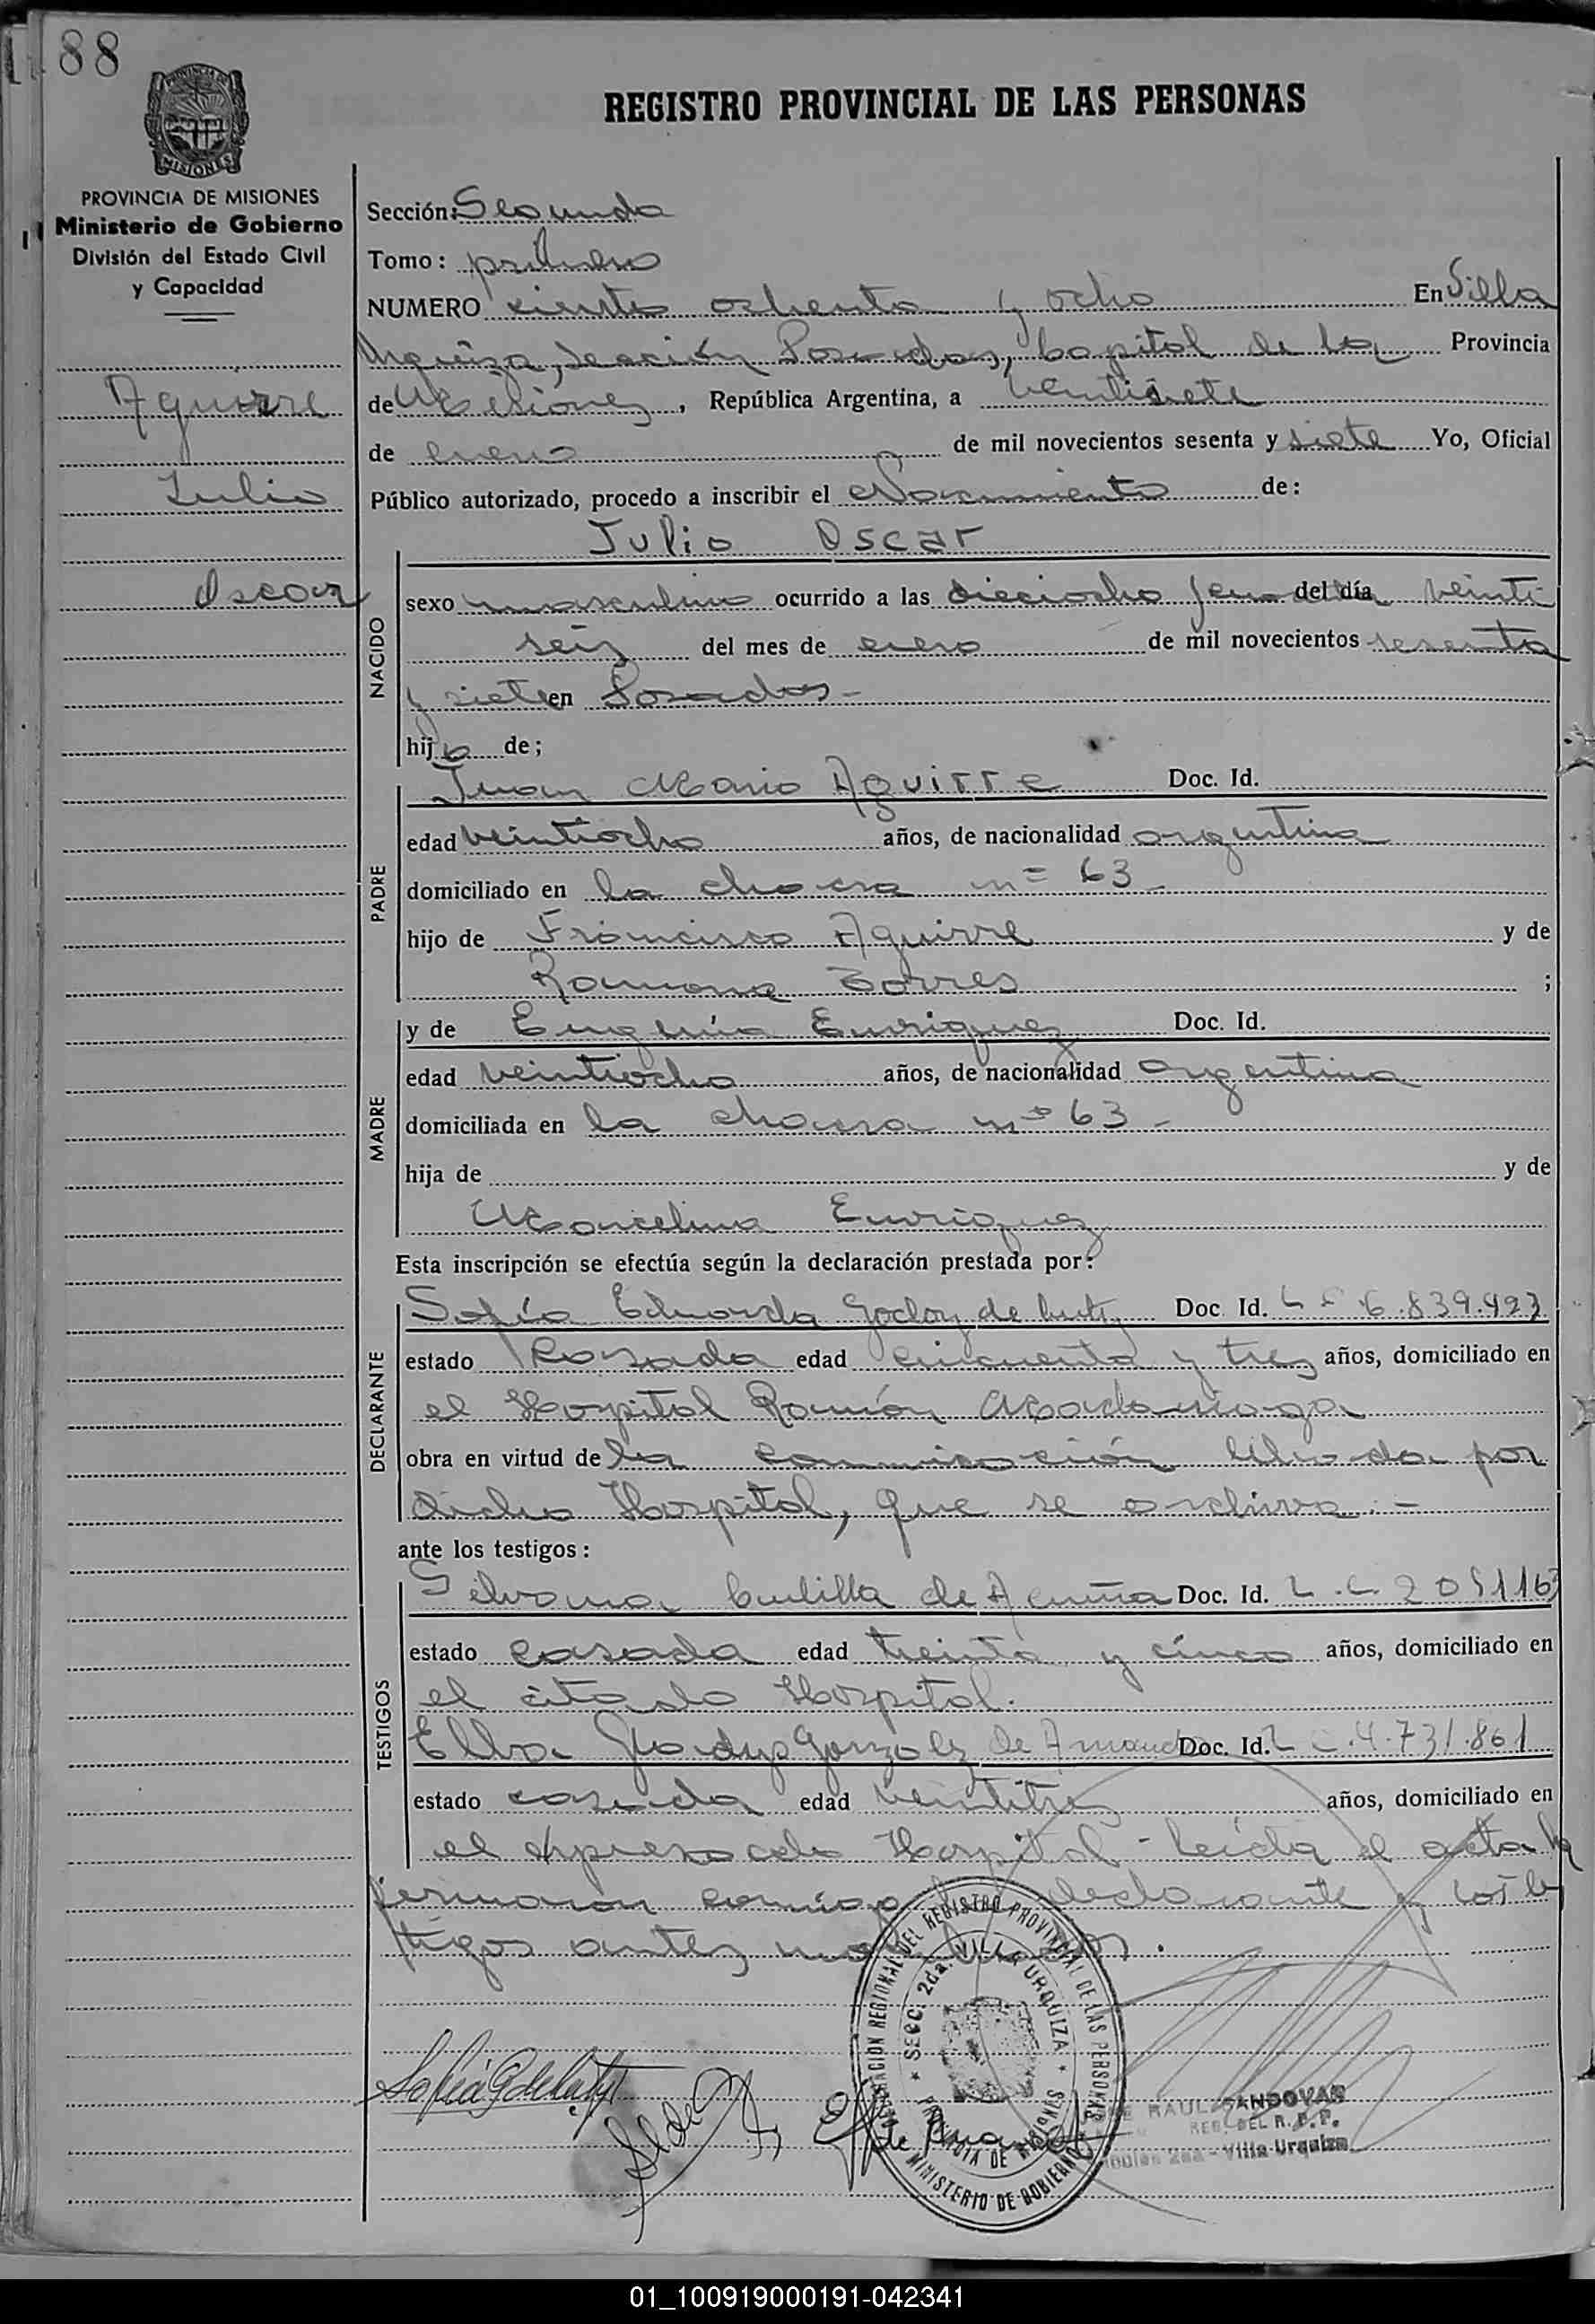 188
MISIONES
PROVINCIA DE MISIONES
Ministerio de Gobierno
División del Estado Civil
y Capacidad
Aguirre
Julio
Oscar
REGISTRO PROVINCIAL DE LAS PERSONAS
Sección: Segunda
Tomo: primero
NUMERO ciento ochenta y ocho En Villa
Urquiza, sección Posadas, Capital de la Provincia
de Misiones, República Argentina, a veintisiete
de enero de mil novecientos sesenta y siete Yo, Oficial
Público autorizado, procedo a inscribir el Nacimiento de:
NACIDO
Julio Oscar
sexo masculino ocurrido a las dieciocho horas del día veinti
seis del mes de enero de mil novecientos sesenta
y siete en Posadas-
hijo de;
PADRE
Juan Mario Aguirre Doc. Id.
edad veintiocho años, de nacionalidad argentina
domiciliado en la chacra n= 63-
hijo de Francisco Aguirre y de
Ramona Torres ;
MADRE
y de Eugenia Enriquez Doc. Id.
edad veintiocho años, de nacionalidad argentina
domiciliada en la chacra nº 63-
hija de y de
Marcelina Enriquez
Esta inscripción se efectúa según la declaración prestada por:
DECLARANTE
Sofía Eduarda Godoy de Doc. Id. L C 6.839.423
estado Casada edad cincuenta y tres años, domiciliado en
el Hospital Ramón Madariaga
obra en virtud de la comunicación librada por
dicho Hospital, que se archiva.-
ante los testigos:
TESTIGOS
Silvana de Acuña Doc. Id. L.C. 2051163
estado casada edad treinta y cinco años, domiciliado en
el citado Hospital.
Elba Gladys Gonzalez de Doc. Id. L C.4.731.861
estado casada edad veintitres años, domiciliado en
el expresado Hospital - Leída el acta la
firmaron conmigo declarante y los tes
tigos antes
DEL REGISTRO PROVINCIAL DE LAS PERSONAS
SECC. 2da. VILLA URQUIZA
PROVINCIA DE MISIONES
MINISTERIO DE GOBIERNO
RAUL SANDOVAL
DEL R.P.P.
2da - Villa Urquiza
01_100919000191-042341